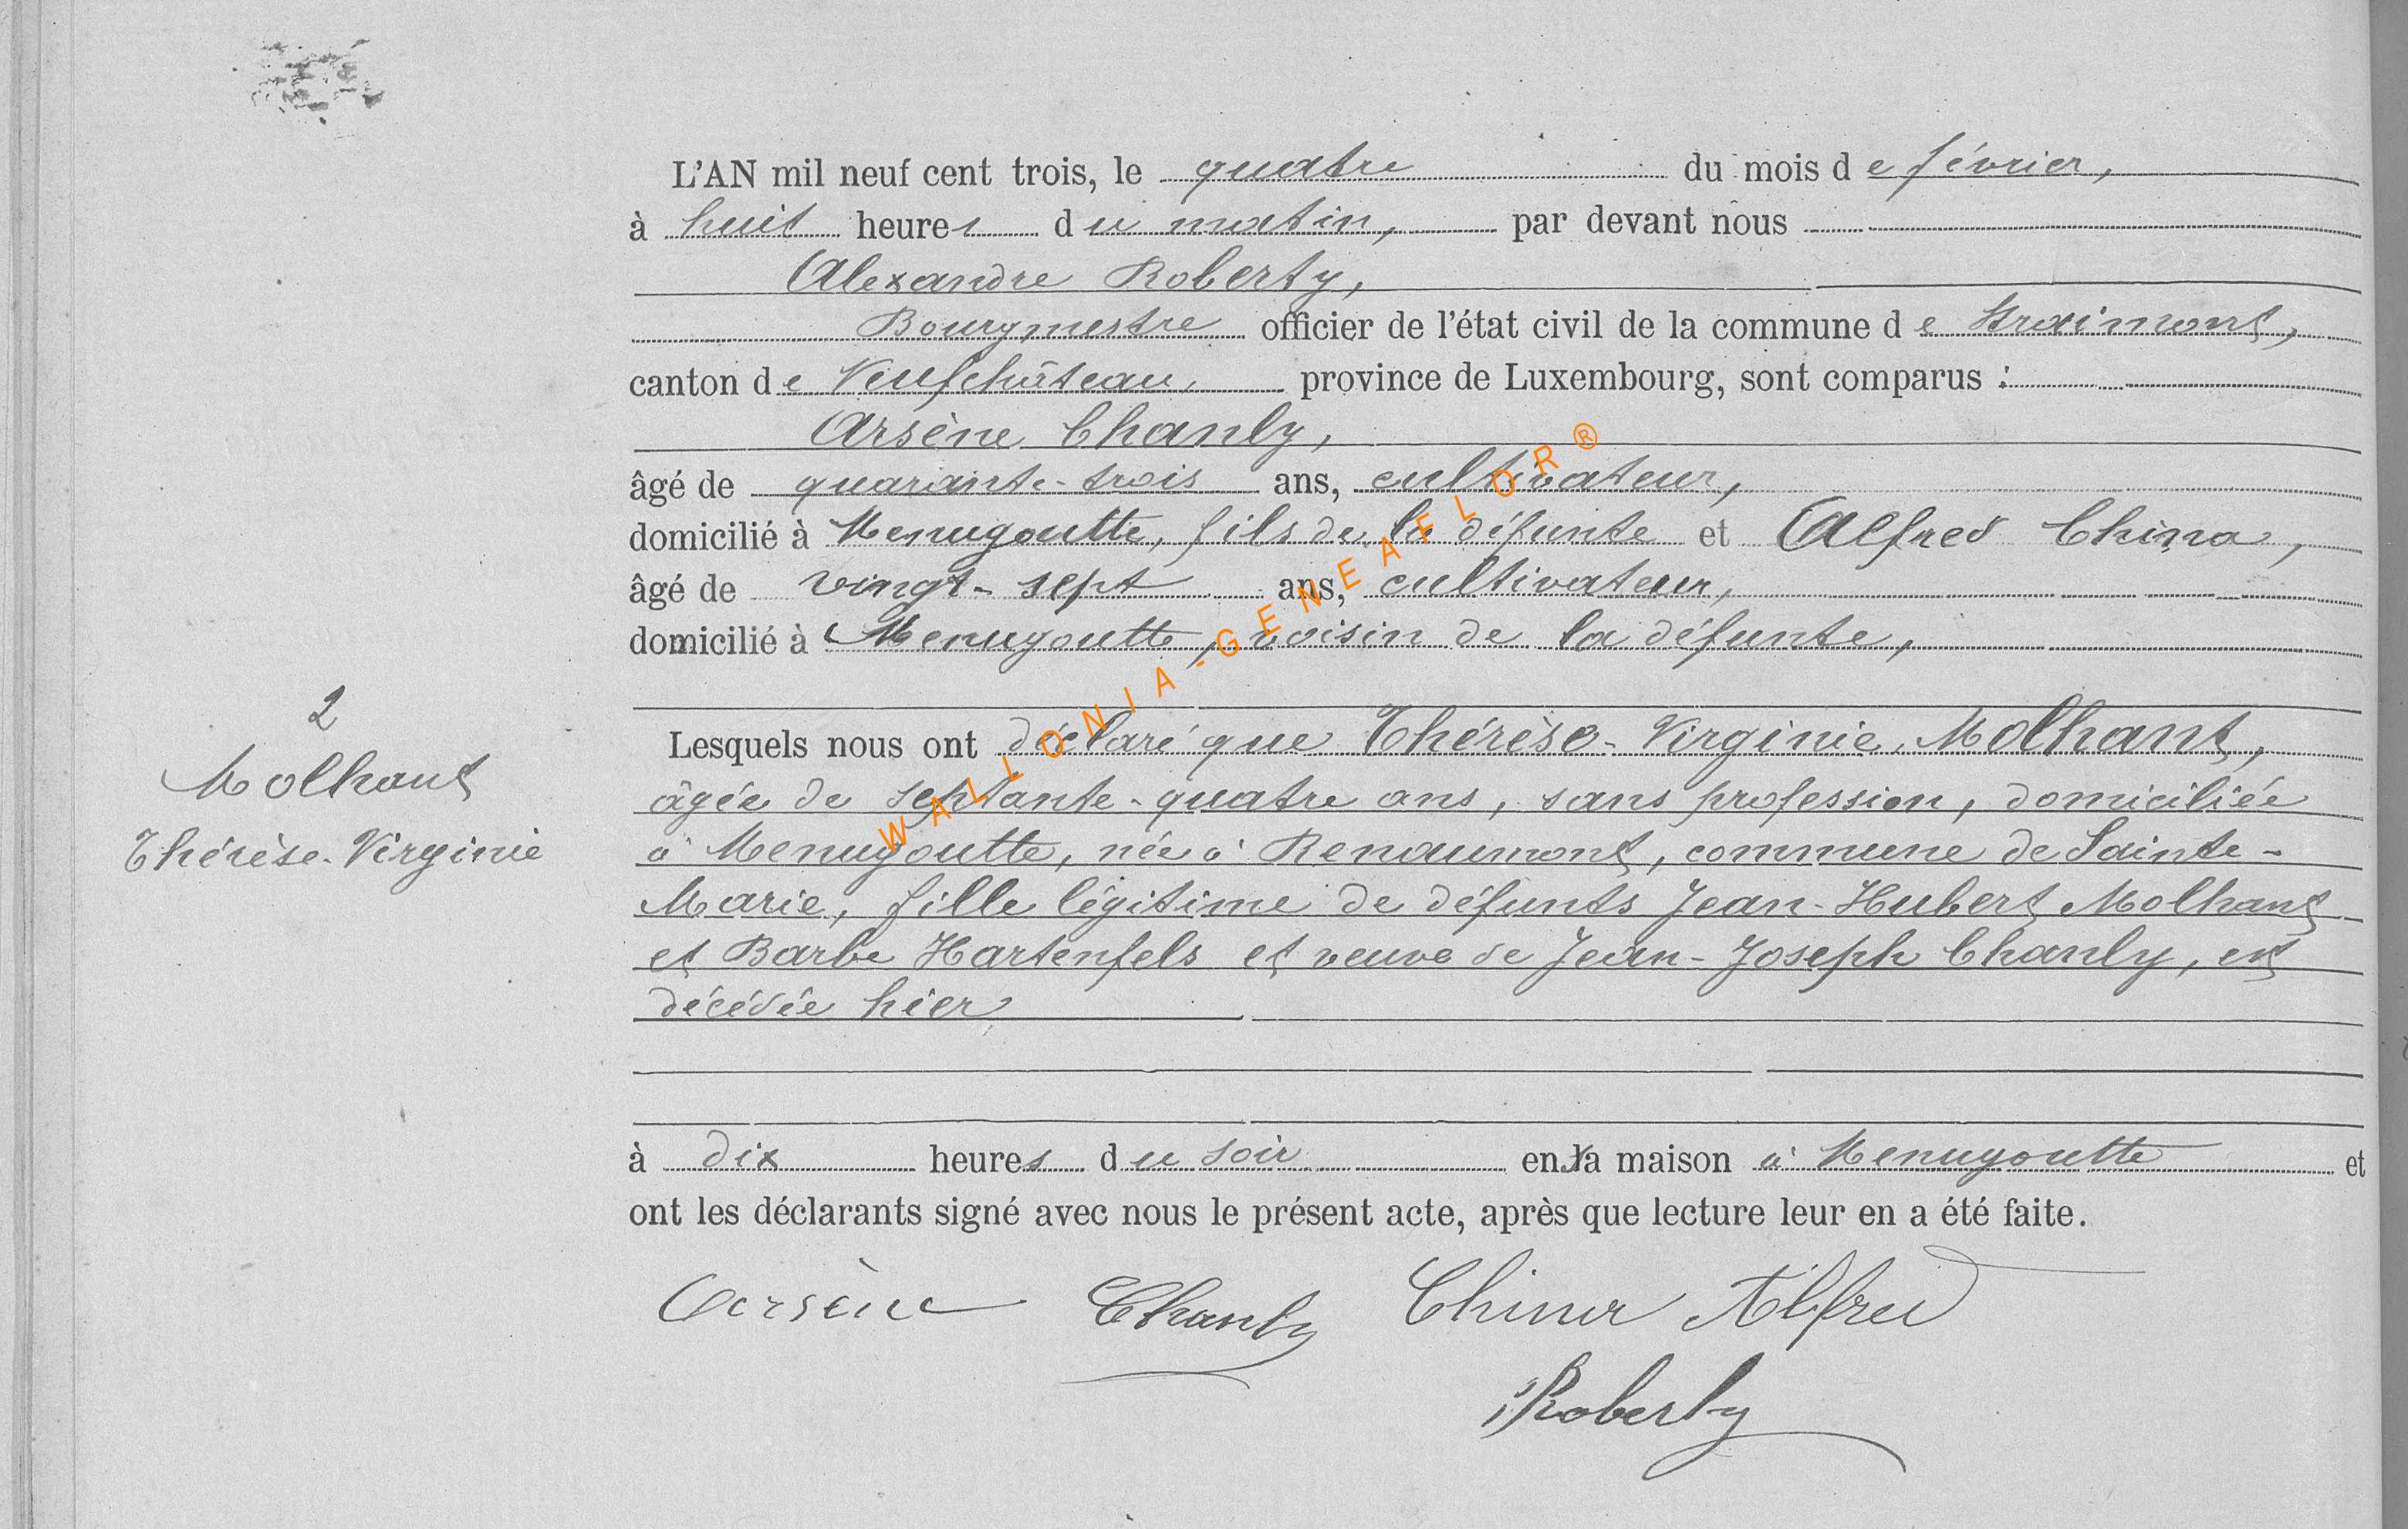 L'AN mil neuf cent trois, le quatre du mois de février,
à huit heures du matin, par devant nous
Alexandre Roberty,
Bourgmestre officier de l'état civil de la commune de Straimont,
canton de Neufchâteau, province de Luxembourg, sont comparus :
Arsène Chanly,
âgé de quarante-trois ans, cultivateur,
domicilié à Menugoutte, fils de la défunte et Alfred China,
âgé de vingt-sept ans, cultivateur,
domicilié à Menugoutte, voisin de la défunte,
2
Molhant
Thérèse-Virginie
Lesquels nous ont déclaré que Thérèse-Virginie Molhant,
âgée de septante-quatre ans, sans profession, domiciliée
à Menugoutte, née à Renaumont, commune de Sainte-
Marie, fille légitime de défunts Jean-Hubert Molhant
et Barbe Hartenfels et veuve de Jean-Joseph Chanly, est
décédée hier
à dix heures du soir en sa maison à Menugoutte et
ont les déclarants signé avec nous le présent acte, après que lecture leur en a été faite.
Arsène Chanly China Alfred
Roberty
WALLONIA-GENEAFLOR®